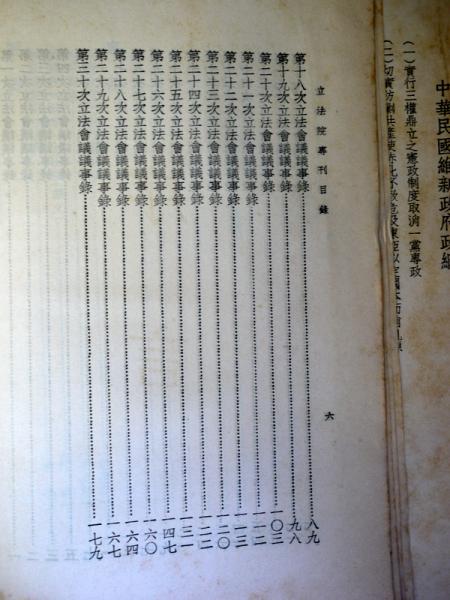 中華民國維新政府政綱
(一)實行三權鼎立之憲政制度取消一黨專政
(二)切實防制共產使赤化不致危及東亞以
立法院專刊目錄 六
第十八次立法會議議事錄……八九
第十九次立法會議議事錄……九八
第二十次立法會議議事錄……一〇三
第二十一次立法會議議事錄……一一二
第二十二次立法會議議事錄……一一三
第二十三次立法會議議事錄……一二〇
第二十四次立法會議議事錄……一二二
第二十五次立法會議議事錄……一三一
第二十六次立法會議議事錄……一四七
第二十七次立法會議議事錄……一六〇
第二十八次立法會議議事錄……一六四
第二十九次立法會議議事錄……一六七
第三十次立法會議議事錄……一七九